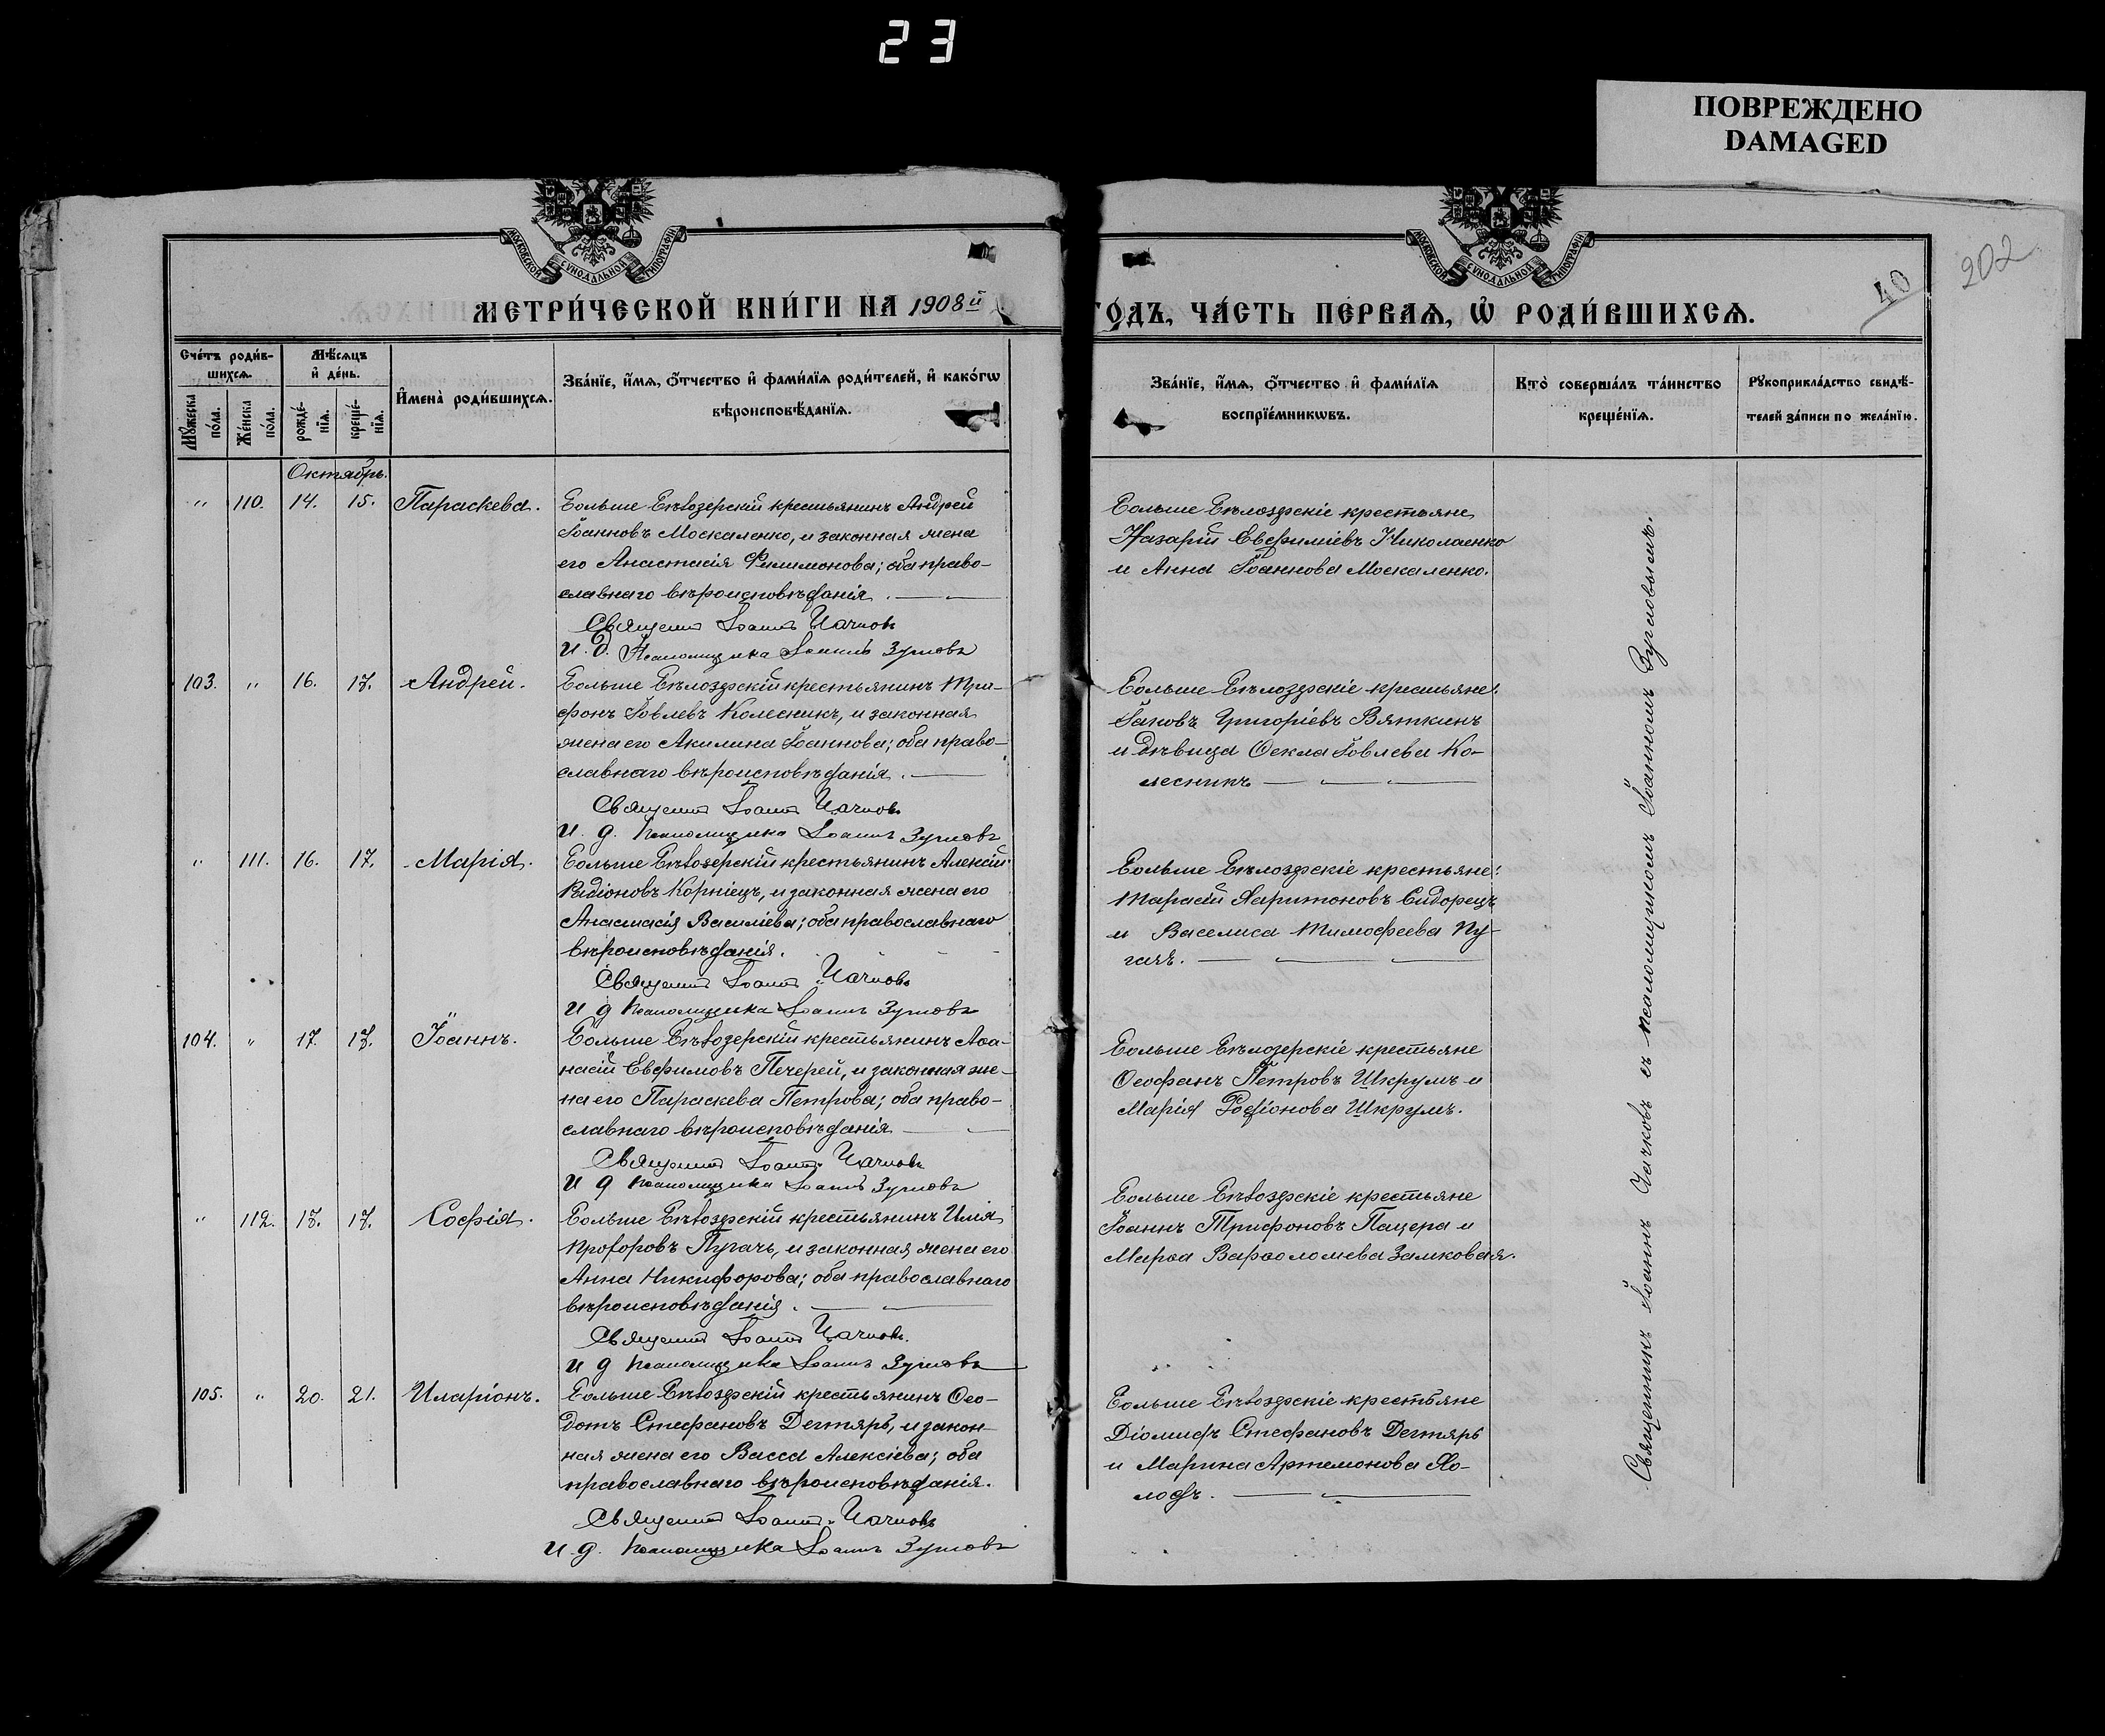 23
ПОВРЕЖДЕНО
DAMAGED
202
40
МОСКОВСКОЙ СѴНОДАЛЬНОЙ ТИПОГРАФІИ
МОСКОВСКОЙ СѴНОДАЛЬНОЙ ТИПОГРАФІИ
МЕТРИ́ЧЕСКОЙ КНИ́ГИ НА 1908й
ГОДЪ, ЧА́СТЬ ПЕ́РВАѦ, Ѡ҆ РОДИ́ВШИХСѦ.
Сче́тъ роди́в-
шихсѧ.
Мꙋ́жеска по́ла.
Же́нска по́ла.
Мѣ́сѧцъ
и҆ де́нь.
рожде́-
нїѧ.
креще́-
нїѧ.
И҆мена̀ роди́вшихсѧ.
Зва́нїе, и҆́мѧ, ѻ҆́тчество и҆ фами́лїѧ роди́телей, и҆ како́гѡ
вѣроисповѣ́данїѧ.
Зва́нїе, и҆́мѧ, ѻ҆́тчество и҆ фами́лїѧ
воспрїе́мникѡвъ.
Кто̀ соверша́лъ та́инство
креще́нїѧ.
Рꙋкоприкла́дство свидѣ́-
телей за́писи по жела́нїю.
Октябрь.
" 110. 14. 15. Параскева.
Больше Бѣлозерскій крестьянинъ Андрей
Іоанновъ Москаленко, и законная жена
его Анастасія Филимонова; оба право-
славнаго вѣроисповѣданія.
Священ Іоаннъ Чачковъ
И. д. Псаломщика Іоаннъ Зусловъ
Больше Бѣлозерскіе крестьяне
Назарій Евфиміевъ Николаенко
и Анна Іоаннова Москаленко.
103. " 16. 17. Андрей.
Больше Бѣлозерскій крестьянинъ Три-
фонъ Іовлевъ Колесникъ, и законная
жена его Акилина Іоаннова; оба право-
славнаго вѣроисповѣданія.
Священ Іоаннъ Чачковъ
И. д. Псаломщика Іоаннъ Зусловъ
Больше Бѣлозерскіе крестьяне:
Іаковъ Григоріевъ Вяткинъ
и дѣвица Ѳекла Іовлева Ко-
лесникъ
" 111. 16. 17. Марія.
Больше Бѣлозерскій крестьянинъ Алексій
Родіоновъ Корніецъ, и законная жена его
Анастасія Василіева; оба православнаго
вѣроисповѣданія.
Священ Іоаннъ Чачковъ
И д Псаломщика Іоаннъ Зусловъ
Больше Бѣлозерскіе крестьяне:
Тарасій Харитоновъ Сидорецъ
и Василиса Тимофеева Пу-
гачъ.
104. " 17. 17. Іоаннъ.
Больше Бѣлозерскій крестьянинъ Аѳа-
насій Евфимовъ Печерей, и законная же-
на его Параскева Петрова; оба право-
славнаго вѣроисповѣданія
Священ Іоаннъ Чачковъ
И д Псаломщика Іоаннъ Зусловъ
Больше Бѣлозерскіе крестьяне
Ѳеофанъ Петровъ Шкрумъ и
Марія Родіонова Шкрумъ.
" 112. 17. 17. Софія.
Больше Бѣлозерскій крестьянинъ Илія
Прохоровъ Пугачъ, и законная жена его
Анна Никифорова; оба православнаго
вѣроисповѣданія.
Священ Іоаннъ Чачковъ.
И д Псаломщика Іоаннъ Зусловъ
Больше Бѣлозерскіе крестьяне
Іоаннъ Трифоновъ Пацера и
Марѳа Варѳоломева Замковая.
105. " 20. 21. Иларіонъ.
Больше Бѣлозерскій крестьянинъ Ѳео-
дотъ Стефановъ Дегтярь, и закон-
ная жена его Васса Алексіева; оба
православнаго вѣроисповѣданія.
Священ Іоаннъ Чачковъ
И. д. Псаломщика Іоаннъ Зусловъ
Больше Бѣлозерскіе крестьяне
Діомидъ Стефановъ Дегтярь
и Марина Артемонова Хо-
лодъ.
Священникъ Іоаннъ Чачковъ съ псаломщикомъ Іоанномъ Зусловымъ.